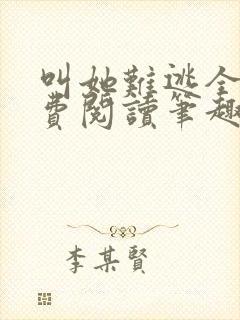 叫她難逃全
費閱讀筆趣
李某賢